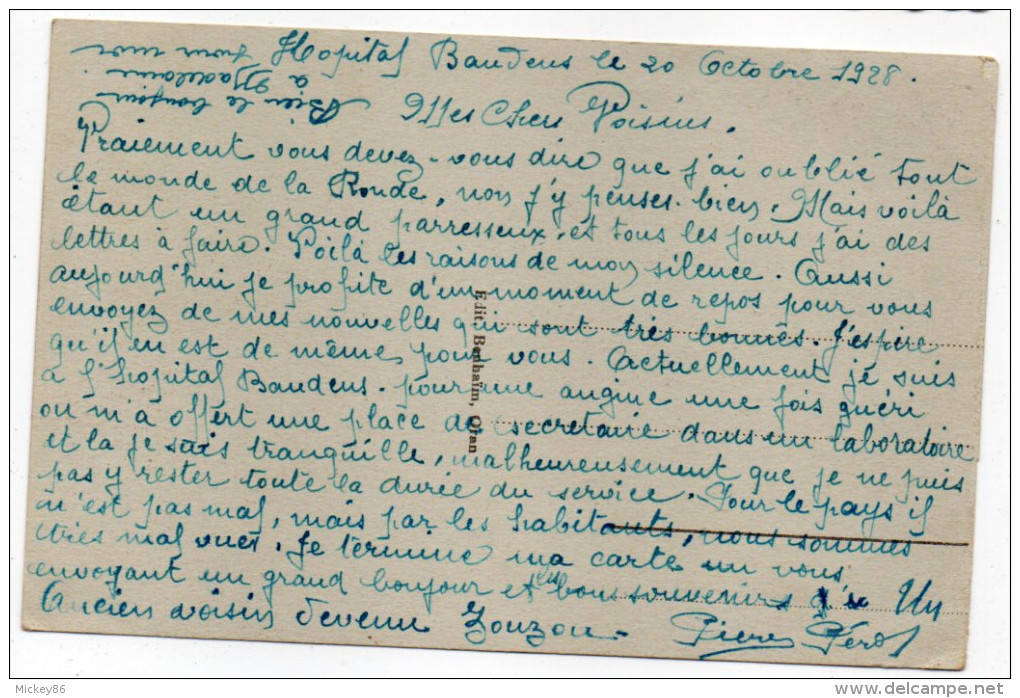 Hopital Baudens le 20 Octobre 1928.
Mes Chers Voisins.
Vraiement vous devez-vous dire que j'ai oublié tout
le monde de la Ronde, non j'y penses bien. Mais voilà
étant un grand parresseux, et tous les jours j'ai des
lettres à faire. Voilà les raisons de mon silence. Aussi
aujourd'hui je profite d'un moment de repos pour vous
envoyez de mes nouvelles qui sont très bonnes. J'espire
qu'il en est de même pour vous. Actuellement je suis
à l'hopital Baudens. pour une angine une fois guéri
on m'a offert une place de secretaire dans un laboratoire
et la je suis tranquille, malheureusement que je ne puis
pas y rester toute la durée du service. Pour le pays il
n'est pas mal, mais par les habitants, nous sommes
très mal vues. Je termine ma carte en vous
envoyant un grand bonjour et les bons souvenirs d'u Un
Ancien voisin devenu Zouzou.
Pierre Pérol
Bien le bonjour
à Madelaine
pour moi
Edit. Benhaïm, Oran
Mickey86
www.delcampe.net